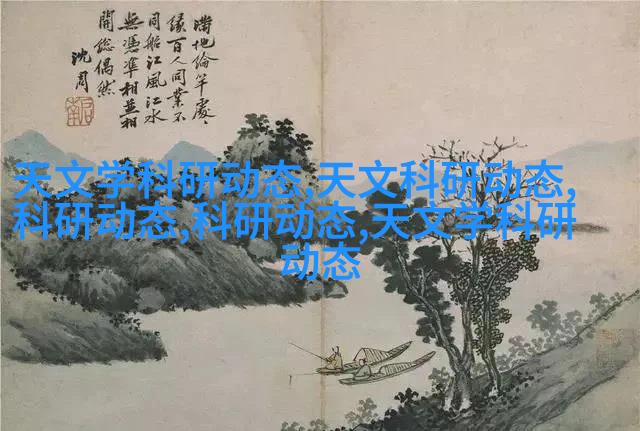 滿地綸竿處々
緣百人同業不
同船江風江水
無憑準相並相
開總偶然
沈周
天文学科研动态,天文科研动态,
科研动态,科研动态,天文学科研
动态